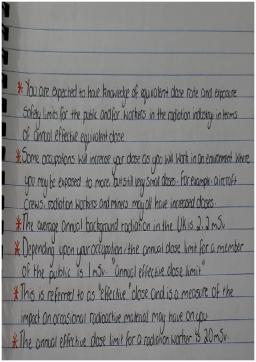 * You are expected to have knowledge of equivalent dose rate and exposure
safety limits for the public and for workers in the radiation industry in terms
of annual effective equivalent dose
* Some occupations will increase your dose as you will work in an environment where
you may be exposed to more, but still very small doses. For example: aircraft
crews, radiation workers and miners may all have increased doses.
* The average annual background radiation in the UK is 2.2 mSv
* Depending upon your occupation, the annual dose limit for a member
of the public is 1 mSv. "annual effective dose limit"
* This is referred to as "effective" dose and is a measure of the
impact an occasional radioactive material may have on you
* The annual effective dose limit for a radiation worker is 20mSv.